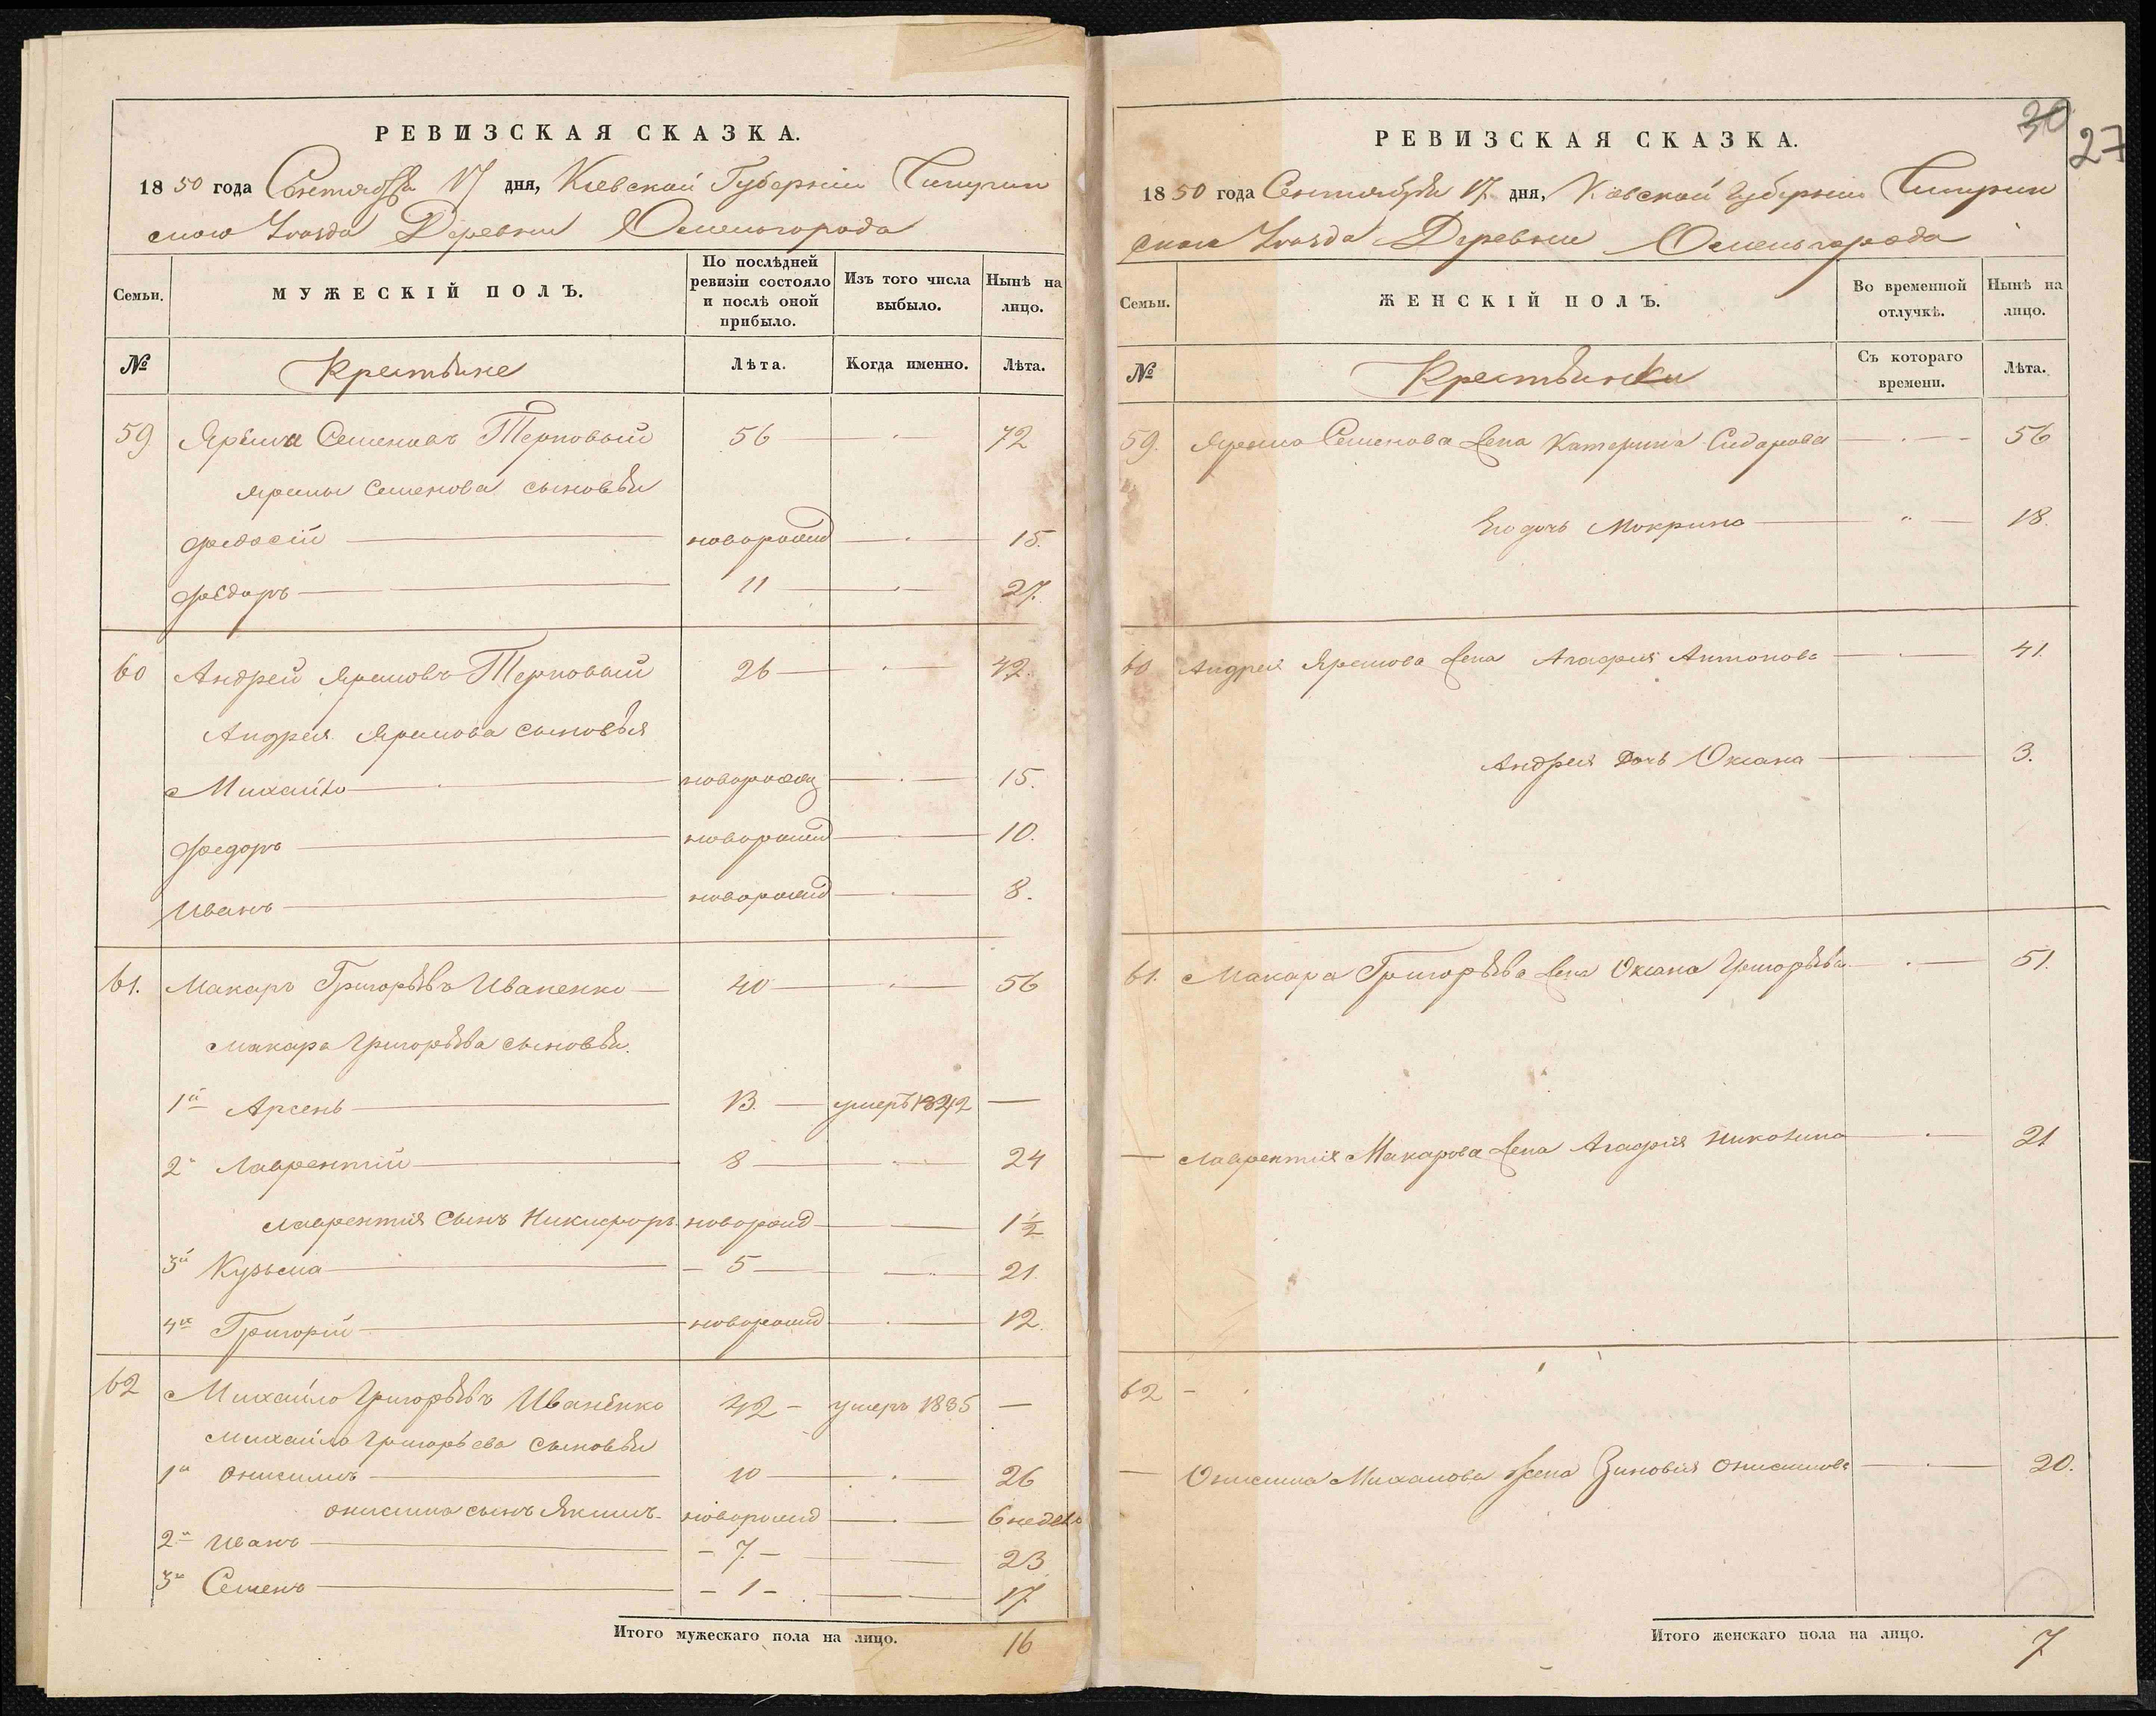 РЕВИЗСКАЯ СКАЗКА.
1850 года Сентября 17 дня, Кіевской Губерніи Чигирин
ского Уѣзда Деревни Осменогорода
Семьи. МУЖЕСКІЙ ПОЛЪ. По послѣдней ревизіи состояло и послѣ оной прибыло. Изъ того числа выбыло. Нынѣ на лицо.
№ Крестьяне Лѣта. Когда именно. Лѣта.
59 Ярема Семеновъ Терновый 56 72
Яремы Семенова сыновья
Федосій новорожд 15.
Федоръ 11 27.
60 Андрей Яремовъ Терновый 26 42.
Андрея Яремова сыновья
Михайло новорожд 15.
Федоръ новорожд 10.
Иванъ новорожд 8.
61. Макаръ Григорьевъ Иваненко 40 56
Макара Григорьева сыновья.
1й Арсень 13. умеръ 1842 —
2й Лаврентій 8 24
Лаврентія сынъ Никифоръ новорожд 1 1/2
3й Кузьма 5 21.
4й Григорій новорожд 12.
62 Михайло Григорьевъ Иваненко 42 умеръ 1835 —
Михайла Григорьева сыновья
1й Онисимъ 10 26
Онисима сынъ Якимъ новорожд 6 недель
2й Иванъ 7 23
3й Семенъ 1 17.
Итого мужескаго пола на лицо. 16
30 27
РЕВИЗСКАЯ СКАЗКА.
1850 года Сентября 17 дня, Кіевской Губерніи Чигирин
ского Уѣзда Деревни Осменогорода
Семьи. ЖЕНСКІЙ ПОЛЪ. Во временной отлучкѣ. Нынѣ на лицо.
№ Крестьянки Съ котораго времени. Лѣта.
59. Яремы Семенова жена Катерина Сидорова 56
Его дочь Мокрина 18.
60 Андрея Яремова жена Агафія Антонова 41.
Андрея дочь Оксана 3.
61. Макара Григорьева жена Оксана Григорьева 51.
— Лаврентія Макарова жена Агафія Никитина 21
62 —
— Онисима Михайлова жена Зиновія Онисимова 20.
Итого женскаго пола на лицо. 7